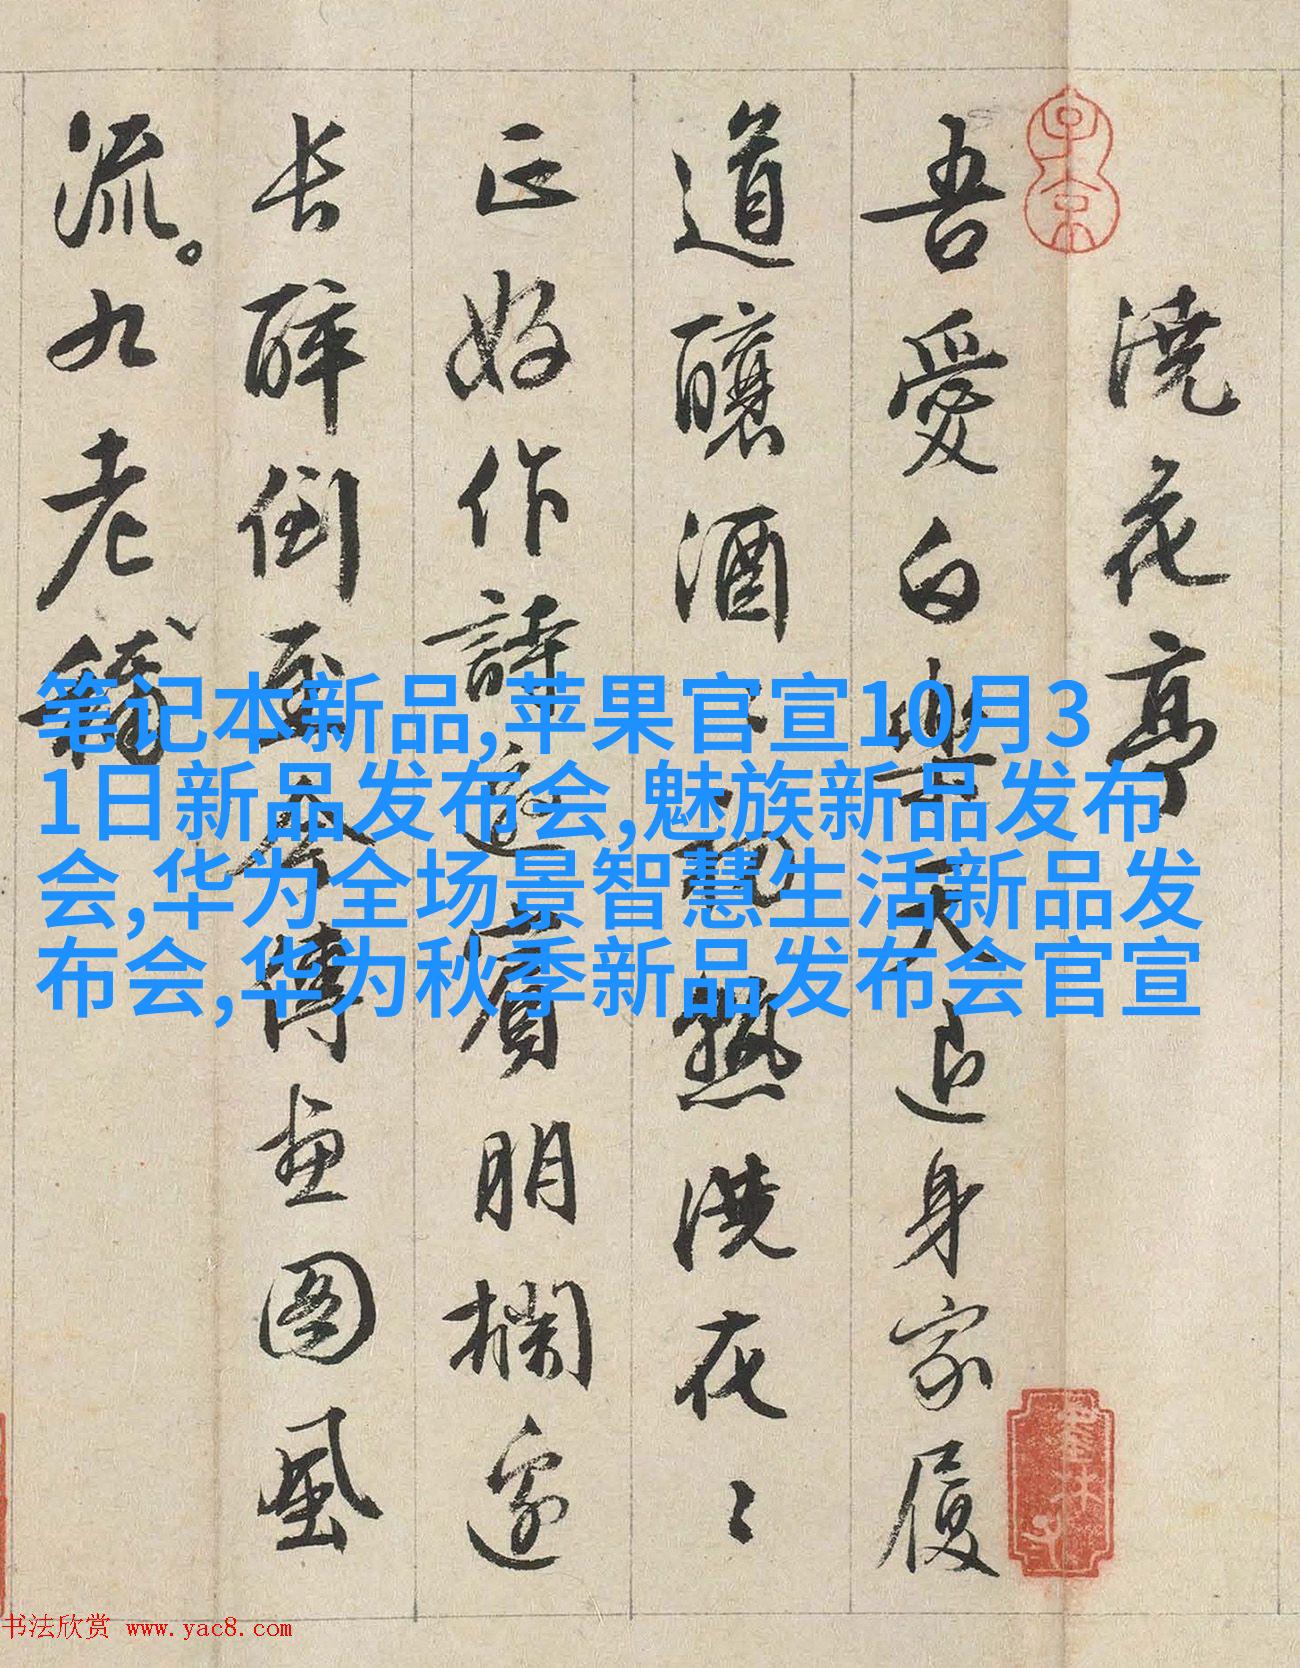 澆花亭
吾愛白樂天退身家履
道釀酒酒初熟澆花花
正好作詩邀賓朋欄邊
長醉倒至今傳畫圖風
流。九老稱
笔记本新品,苹果官宣10月3
1日新品发布会,魅族新品发布
会,华为全场景智慧生活新品发
布会,华为秋季新品发布会官宣
书法欣赏 www.yac8.com